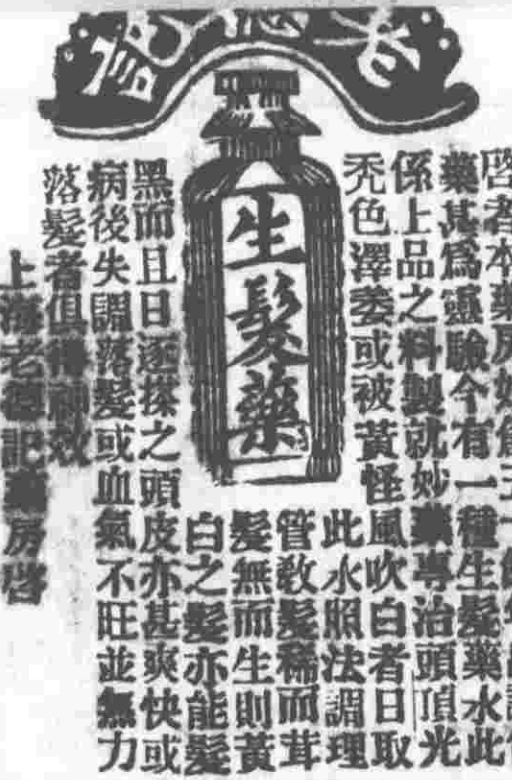 老德記
生髮藥
啓者本藥房始創五十餘年
藥甚爲靈驗今有一種生髮藥水此
係上品之料製就妙藥專治頭頂光
禿色澤萎或被黃怪風吹白者日取
此水照法調理
管敎髮稀而茸
髮無而生則黃
白之髮亦能髮
黑而且日逐搽之頭皮亦甚爽快或
病後失調落髮或血氣不旺並無力
落髮者俱得神效
上海老德記藥房啓